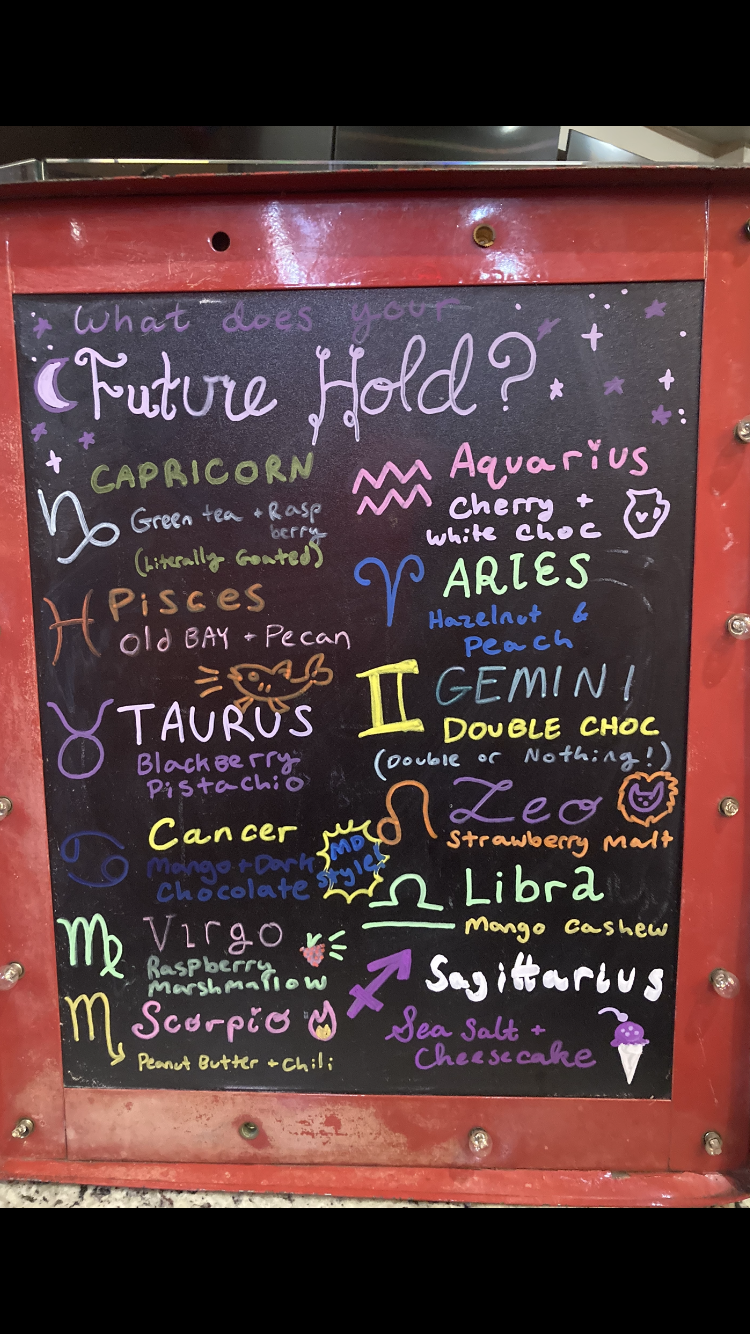 What does your
Future Hold?
CAPRICORN
Green tea + Rasp
berry
(Literally Goated)
Pisces
Old BAY + Pecan
TAURUS
Blackberry
Pistachio
Cancer
Mango + Dark
Chocolate
MD
Style!
Virgo
Raspberry
Marshmallow
Scorpio
Peanut Butter + Chili
Aquarius
Cherry +
White Choc
ARIES
Hazelnut &
Peach
GEMINI
DOUBLE CHOC
(Double or Nothing!)
Leo
Strawberry Malt
Libra
Mango Cashew
Sagittarius
Sea Salt +
Cheesecake